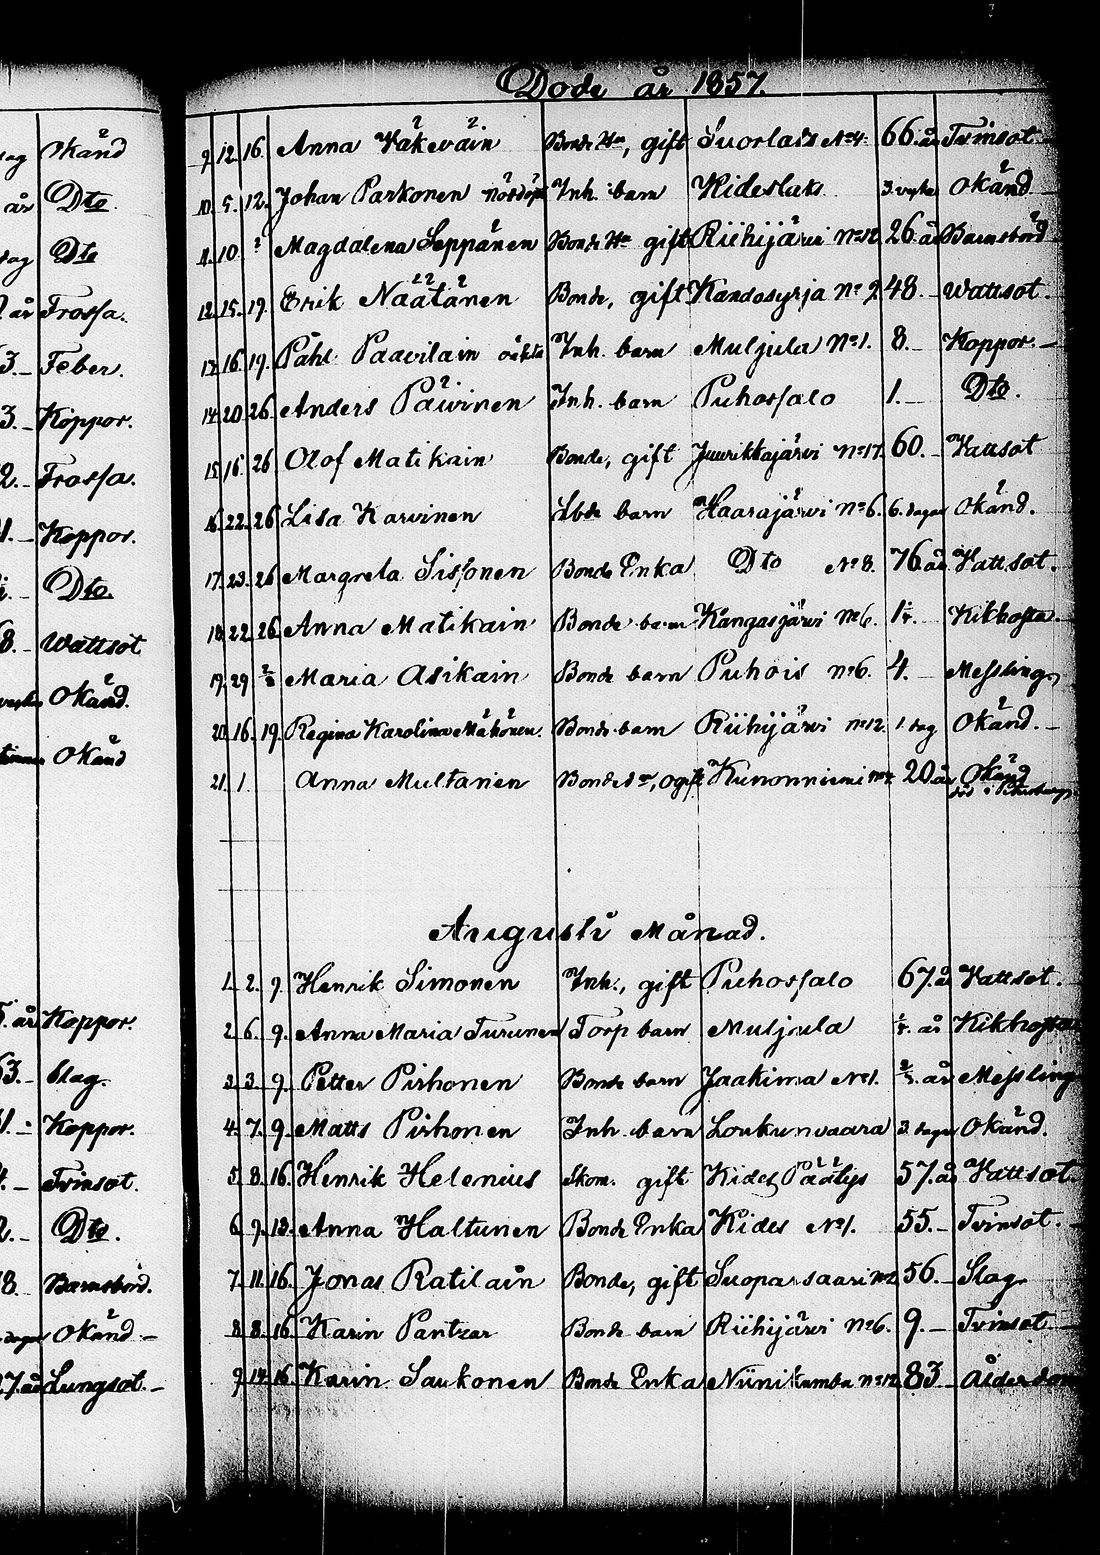 Döde år 1857.
9. 12. 16. Anna Käkeväin Bonde Hu, gift Suorlaks No 4. 66. år Tvinsot.
10. 5. 12. Johan Parkonen Inh. barn Kideslaks 3. Okänd
11. 10. Magdalena Seppänen Bonde Hu gift Riihijärvi No 12 26. år Barnsbörd
12. 15. 19. Erik Näätänen Bonde, gift Kandosyrja No 9. 48. Wattsot.
13. 16. 19. Påhl Paavilain oäkta Inh. barn Muljula No 1. 8. Koppor.
14. 20. 26. Anders Päivinen Inh. barn Puhossalo 1. Dto.
15. 16. 26 Olof Matikain Bonde, gift Juurikkajärvi No 17. 60. Vattsot
16. 22. 26. Lisa Karvinen barn Haarajärvi No 6. 6. dagar Okänd.
17. 23. 26 Margreta Sissonen Bonde Enka Dto No 8. 76 år Vattsot.
18. 22. 26. Anna Matikain Bonde barn Kangasjärvi No 6. Kikhosta
19. 29 2/8 Maria Asikain Bonde barn Puhois No 6. 4. Messling
20. 16. 19. Regina Karolina Mähönen. Bonde barn Riihijärvi No 12. 1 dag Okänd.
21. 1 Anna Multanen Bonde dr, ogift Kunonniemi 20 år Okänd
död i Petersburg
Augusti Månad.
1. 2. 9. Henrik Simonen Inh., gift Puhossalo 67. år Vattsot.
2. 6. 9. Anna Maria Turunen Torp barn Muljula år Kikhosta
3. 3. 9. Petter Pirhonen Bonde barn Jaakima No 1. år Messling
4. 7. 9. Matts Pirhonen Inh. barn Loukunvaara 3. dagar Okänd.
5. 8. 16. Henrik Helenius Skom. gift Kides 57. år Vattsot.
6 9. 13. Anna Haltunen Bonde Enka Kides No 1. 55. Tvinsot.
7. 11. 16. Jonas Ratilain Bonde, gift Suoparsaari No 2 56. Slag
8. 8. 16. Karin Pantzar Bonde barn Riihijärvi No 6. 9. Tvinsot
9 14. 16. Karin Saukonen Bonde Enka Niinikumba No 12. 83 Ålderdom
Okänd
år Dto.
dag Dto
år Frossa.
3. Feber.
3. Koppor.
2. Frossa.
Koppor.
Dto.
8. Wattsot
Okänd.
Okänd
5. år Koppor.
63. Slag.
Koppor.
Tvinsot.
Dto.
8. Barnsbörd.
dagar Okänd
27. år Lungsot.